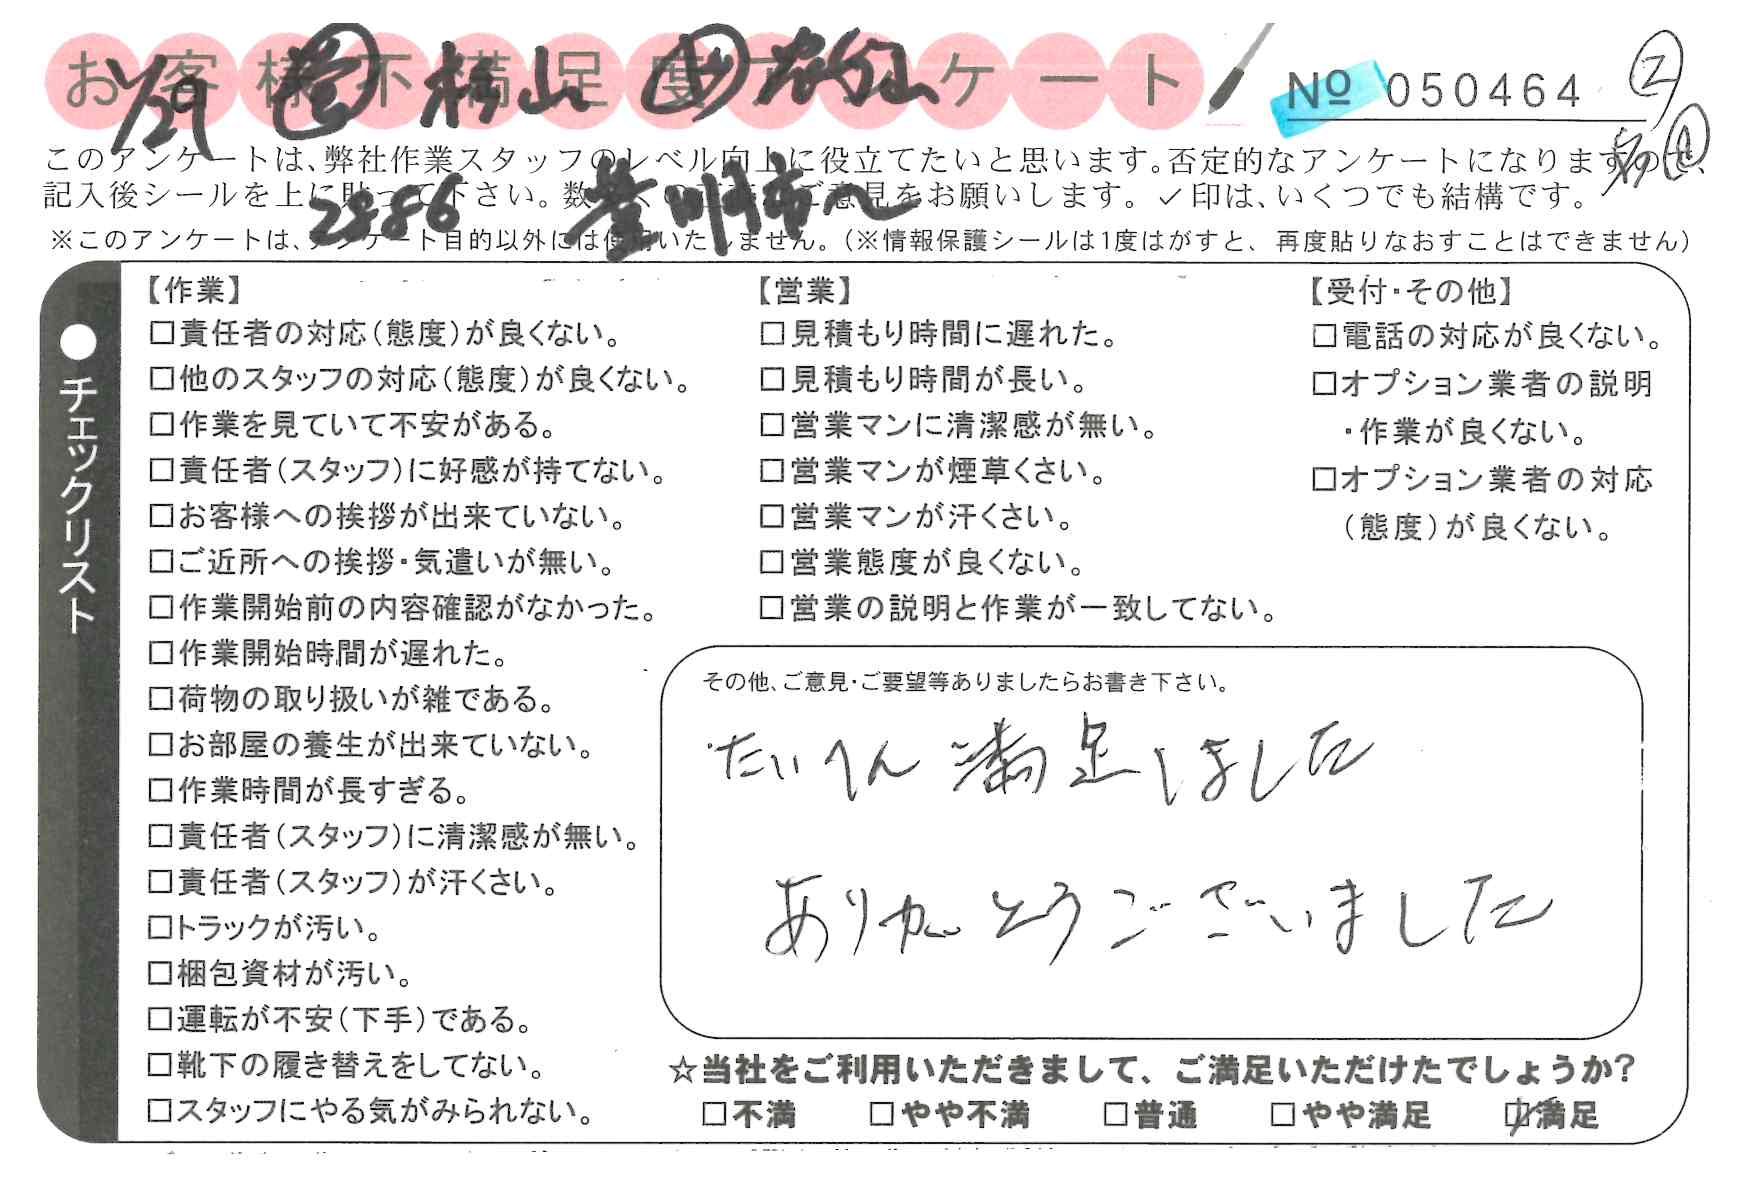 お客様不満足度アンケート
No 050464
2
1/29 営 横山
2886 豊明市へ
このアンケートは、弊社作業スタッフのレベル向上に役立てたいと思います。否定的なアンケートになりますので、
記入後シールを上に貼って下さい。数多くの ご意見をお願いします。✓印は、いくつでも結構です。
※このアンケートは、アンケート目的以外には使用いたしません。(※情報保護シールは1度はがすと、再度貼りなおすことはできません)
●チェックリスト
【作業】
□責任者の対応(態度)が良くない。
□他のスタッフの対応(態度)が良くない。
□作業を見ていて不安がある。
□責任者(スタッフ)に好感が持てない。
□お客様への挨拶が出来ていない。
□ご近所への挨拶・気遣いが無い。
□作業開始前の内容確認がなかった。
□作業開始時間が遅れた。
□荷物の取り扱いが雑である。
□お部屋の養生が出来ていない。
□作業時間が長すぎる。
□責任者(スタッフ)に清潔感が無い。
□責任者(スタッフ)が汗くさい。
□トラックが汚い。
□梱包資材が汚い。
□運転が不安(下手)である。
□靴下の履き替えをしてない。
□スタッフにやる気がみられない。
【営業】
□見積もり時間に遅れた。
□見積もり時間が長い。
□営業マンに清潔感が無い。
□営業マンが煙草くさい。
□営業マンが汗くさい。
□営業態度が良くない。
□営業の説明と作業が一致してない。
【受付・その他】
□電話の対応が良くない。
□オプション業者の説明
・作業が良くない。
□オプション業者の対応
(態度)が良くない。
その他、ご意見・ご要望等ありましたらお書き下さい。
たいへん満足しました
ありがとうございました
☆当社をご利用いただきまして、ご満足いただけたでしょうか?
□不満 □やや不満 □普通 □やや満足 ☑満足